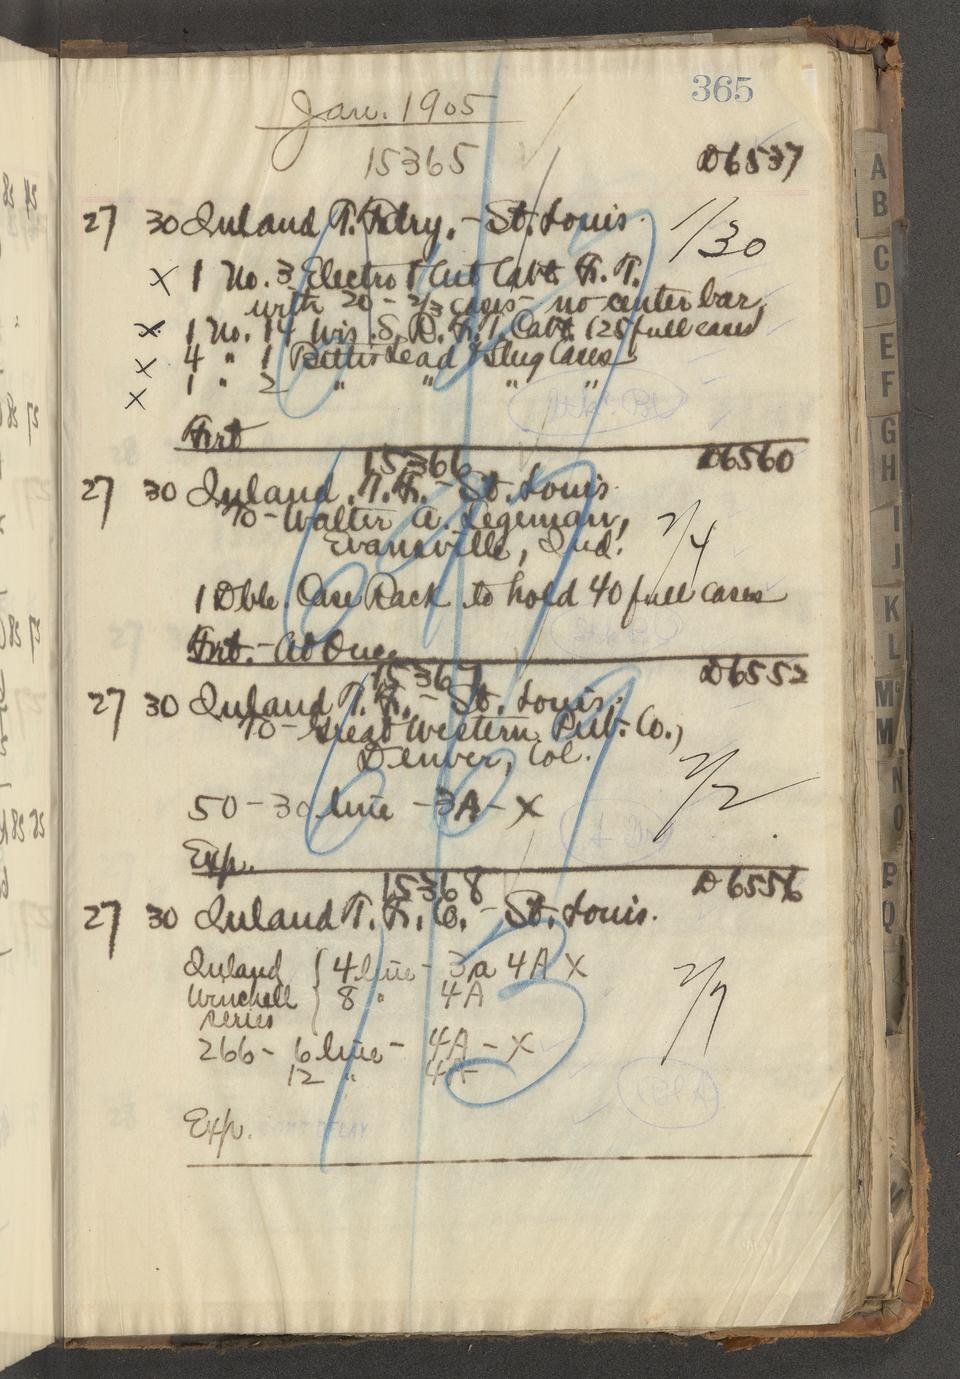 365
Jan. 1905
15365 D6537
27 30 Inland T. Fdry. - St. Louis 1/30
x 1 No. 3 Electro & Cut Cabt. H. T.
with 20 - 2/3 cases - no center bar
x 1 No. 14 Wis. S. D. H. T. Cabt. (25 full cases)
x 4 " 1 Lead & Slug Cases
x 1 " 2 " " " "
Frt
15366 D6560
27 30 Inland T. F. - St. Louis
To - Walter A. Legeman, 2/4
Evansville, Ind.
1 Dble. Case Rack to hold 40 full cases
Frt. - At Once
15367 D6552
27 30 Inland T. F. - St. Louis.
To - Great Western Pub. Co.,
Denver, Col. 2/2
50 - 30 line - 3A - X
Exp.
15368 D6556
27 30 Inland T. F. Co. - St. Louis.
Inland { 4 line - 3a 4A X 2/7
Winchell 8 " 4A
series
266 - 6 line - 4A - X
12 " 4A
Exp. DELAY
A
B
C
D
E
F
G
H
I
J
K
L
M
M
N
O
P
Q